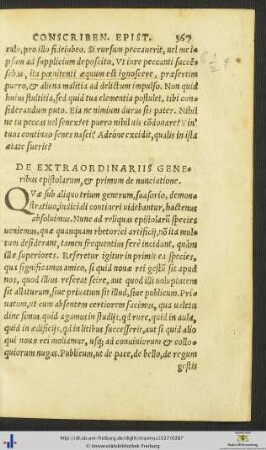 CONSCRIBEN. EPIST. 367
tulo, pro illo fideiubeo. Si rursum peccauerit, uel me ip
sum ad supplicium deposcito. Vt iure peccanti succẽ
sebas, ita pœnitenti æquum est ignoscere, præsertim
puero, & aliena malitia ad delictum impulso. Non quid
huius stultitia, sed quid tua clementia postulet, tibi con
siderandum puto. Eia ne nimium durus sis pater. Nihil
ne tu peccas uel senex? et puero nihil uis cõdonare? Vin'
tuus continuo senex nasci? Adeóne excidit, qualis in ista
ætate fueris?
DE EXTRAORDINARIIS GENE-
ribus epistolarum, & primum de nunciatione.
QVæ sub aliquo trium generum, suasorio, demon-
stratiuo, iudiciali contineri uidebantur, hactenus
absoluimus. Nunc ad reliquas epistolarũ species
ueniemus, quæ quamquam rhetorici artificij, nõ ita mul
tum desiderant, tamen frequentius ferè incidunt, quàm
illæ superiores. Refertur igitur in primis ea species,
qua significamus amico, si quid nouæ rei gestũ sit apud
nos, quod illius referat scire, aut quod illi uoluptatem
sit allaturum, siue priuatum sit illud, siue publicum. Pri
uatum, ut cum absentem certiorem facimus, qua ualetu
dine simus: quid agamus in studijs, qd rure, quid in aula,
quid in ædificijs, qd in litibus successerit, aut si quid alio
qui nouæ rei moliamur, usq; ad conuiuiorum & collo-
quiorum nugas. Publicum, ut de pace, de bello, de regum
gestis
http://dl.ub.uni-freiburg.de/diglit/erasmus1537/0367
© Universitätsbibliothek Freiburg